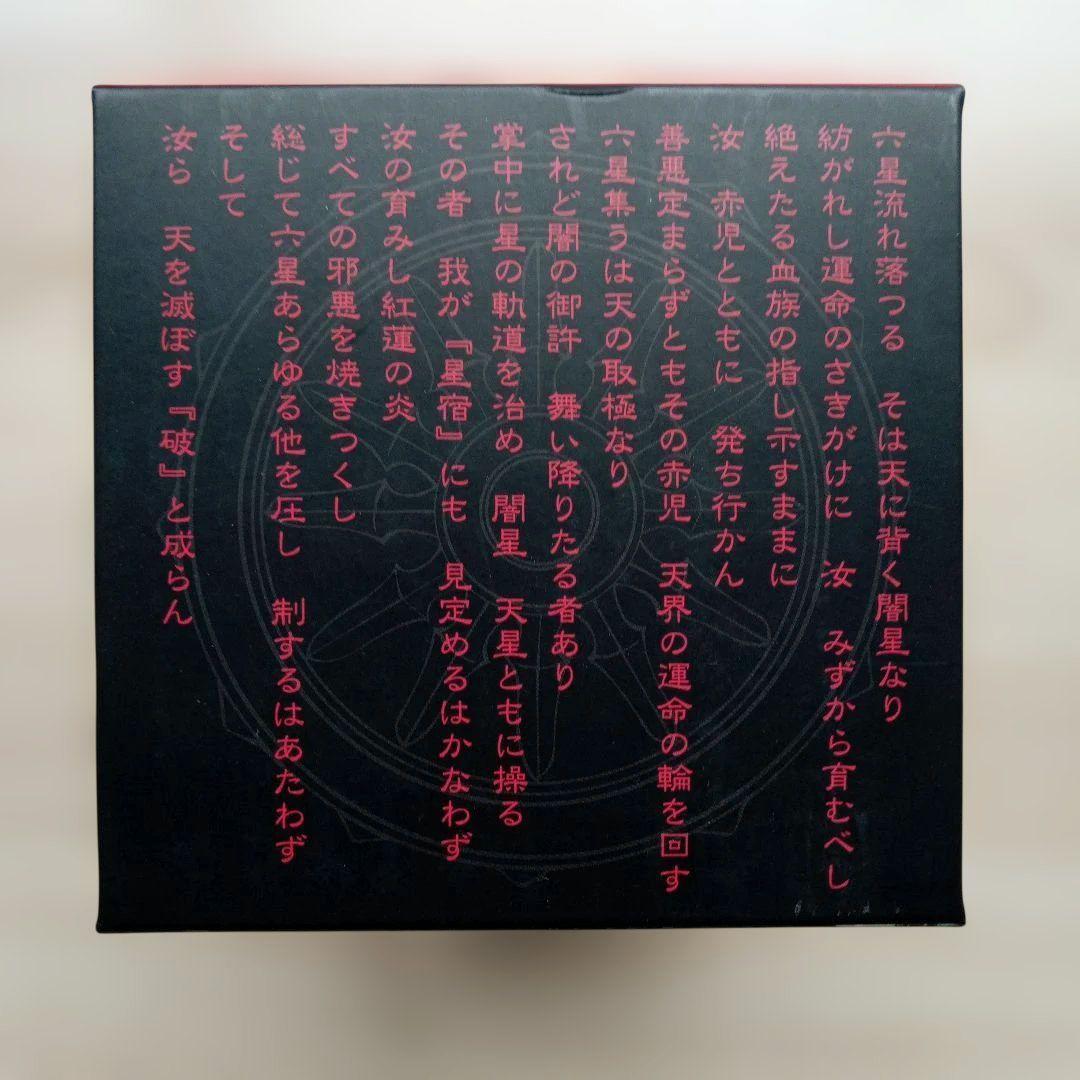 六星流れ落つる　そは天に背く闇星なり
紡がれし運命のさきがけに　汝　みずから育むべし
絶えたる血族の指し示すままに
汝　赤児とともに　発ち行かん
善悪定まらずともその赤児　天界の運命の輪を回す
六星集うは天の取極なり
されど闇の御許　舞い降りたる者あり
掌中に星の軌道を治め　闇星　天星ともに操る
その者　我が『星宿』にも　見定めるはかなわず
汝の育みし紅蓮の炎
すべての邪悪を焼きつくし
総じて六星あらゆる他を圧し　制するはあたわず
そして
汝ら　天を滅ぼす『破』と成らん